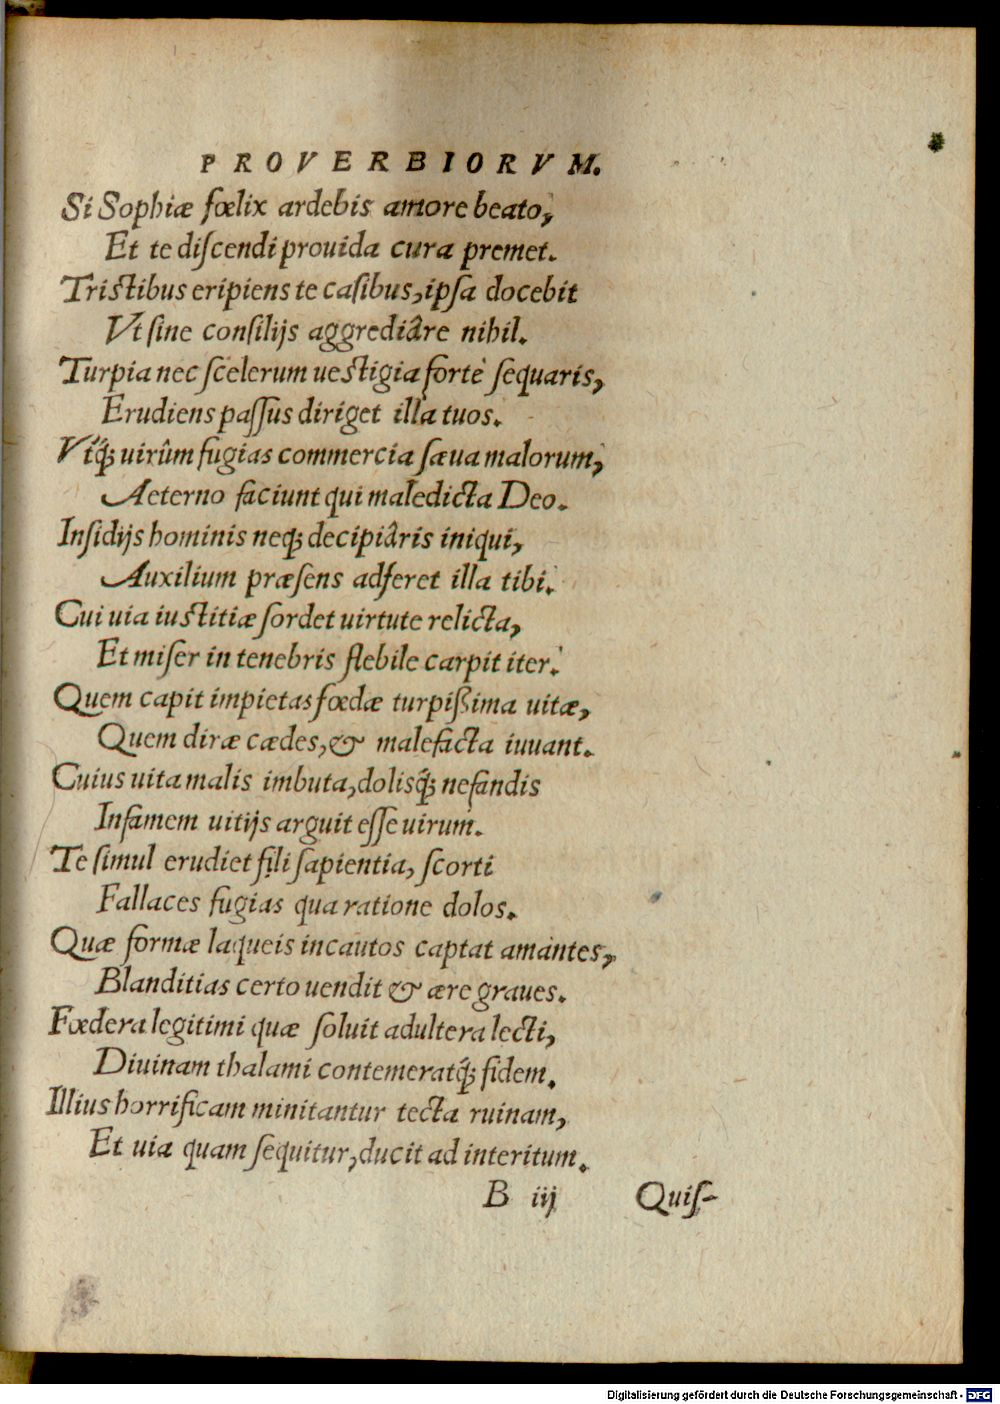 PROVERBIORVM.
Si Sophiæ fœlix ardebis amore beato,
Et te diſcendi prouida cura premet.
Triſtibus eripiens te caſibus, ipſa docebit
Vt ſine conſilijs aggrediâre nihil.
Turpia nec ſcelerum ueſtigia fortè ſequaris,
Erudiens paſſus diriget illa tuos.
Vtq́; uirûm fugias commercia ſæua malorum,
Aeterno faciunt qui maledicta Deo.
Inſidijs hominis neq; decipiâris iniqui,
Auxilium præſens adferet illa tibi.
Cui uia iuſtitiæ ſordet uirtute relicta,
Et miſer in tenebris flebile carpit iter.
Quem capit impietas fœdæ turpißima uitæ,
Quem diræ cædes, & malefacta iuuant.
Cuius uita malis imbuta, dolisq́; nefandis
Infamem uitijs arguit eſſe uirum.
Te ſimul erudiet fili ſapientia, ſcorti
Fallaces fugias qua ratione dolos.
Quæ formæ laqueis incautos captat amantes,
Blanditias certo uendit & ære graues.
Fœdera legitimi quæ ſoluit adultera lecti,
Diuinam thalami contemeratq́; fidem.
Illius horrificam minitantur tecta ruinam,
Et uia quam ſequitur, ducit ad interitum.
B iij Quiſ-
Digitalisierung gefördert durch die Deutsche Forschungsgemeinschaft - DFG